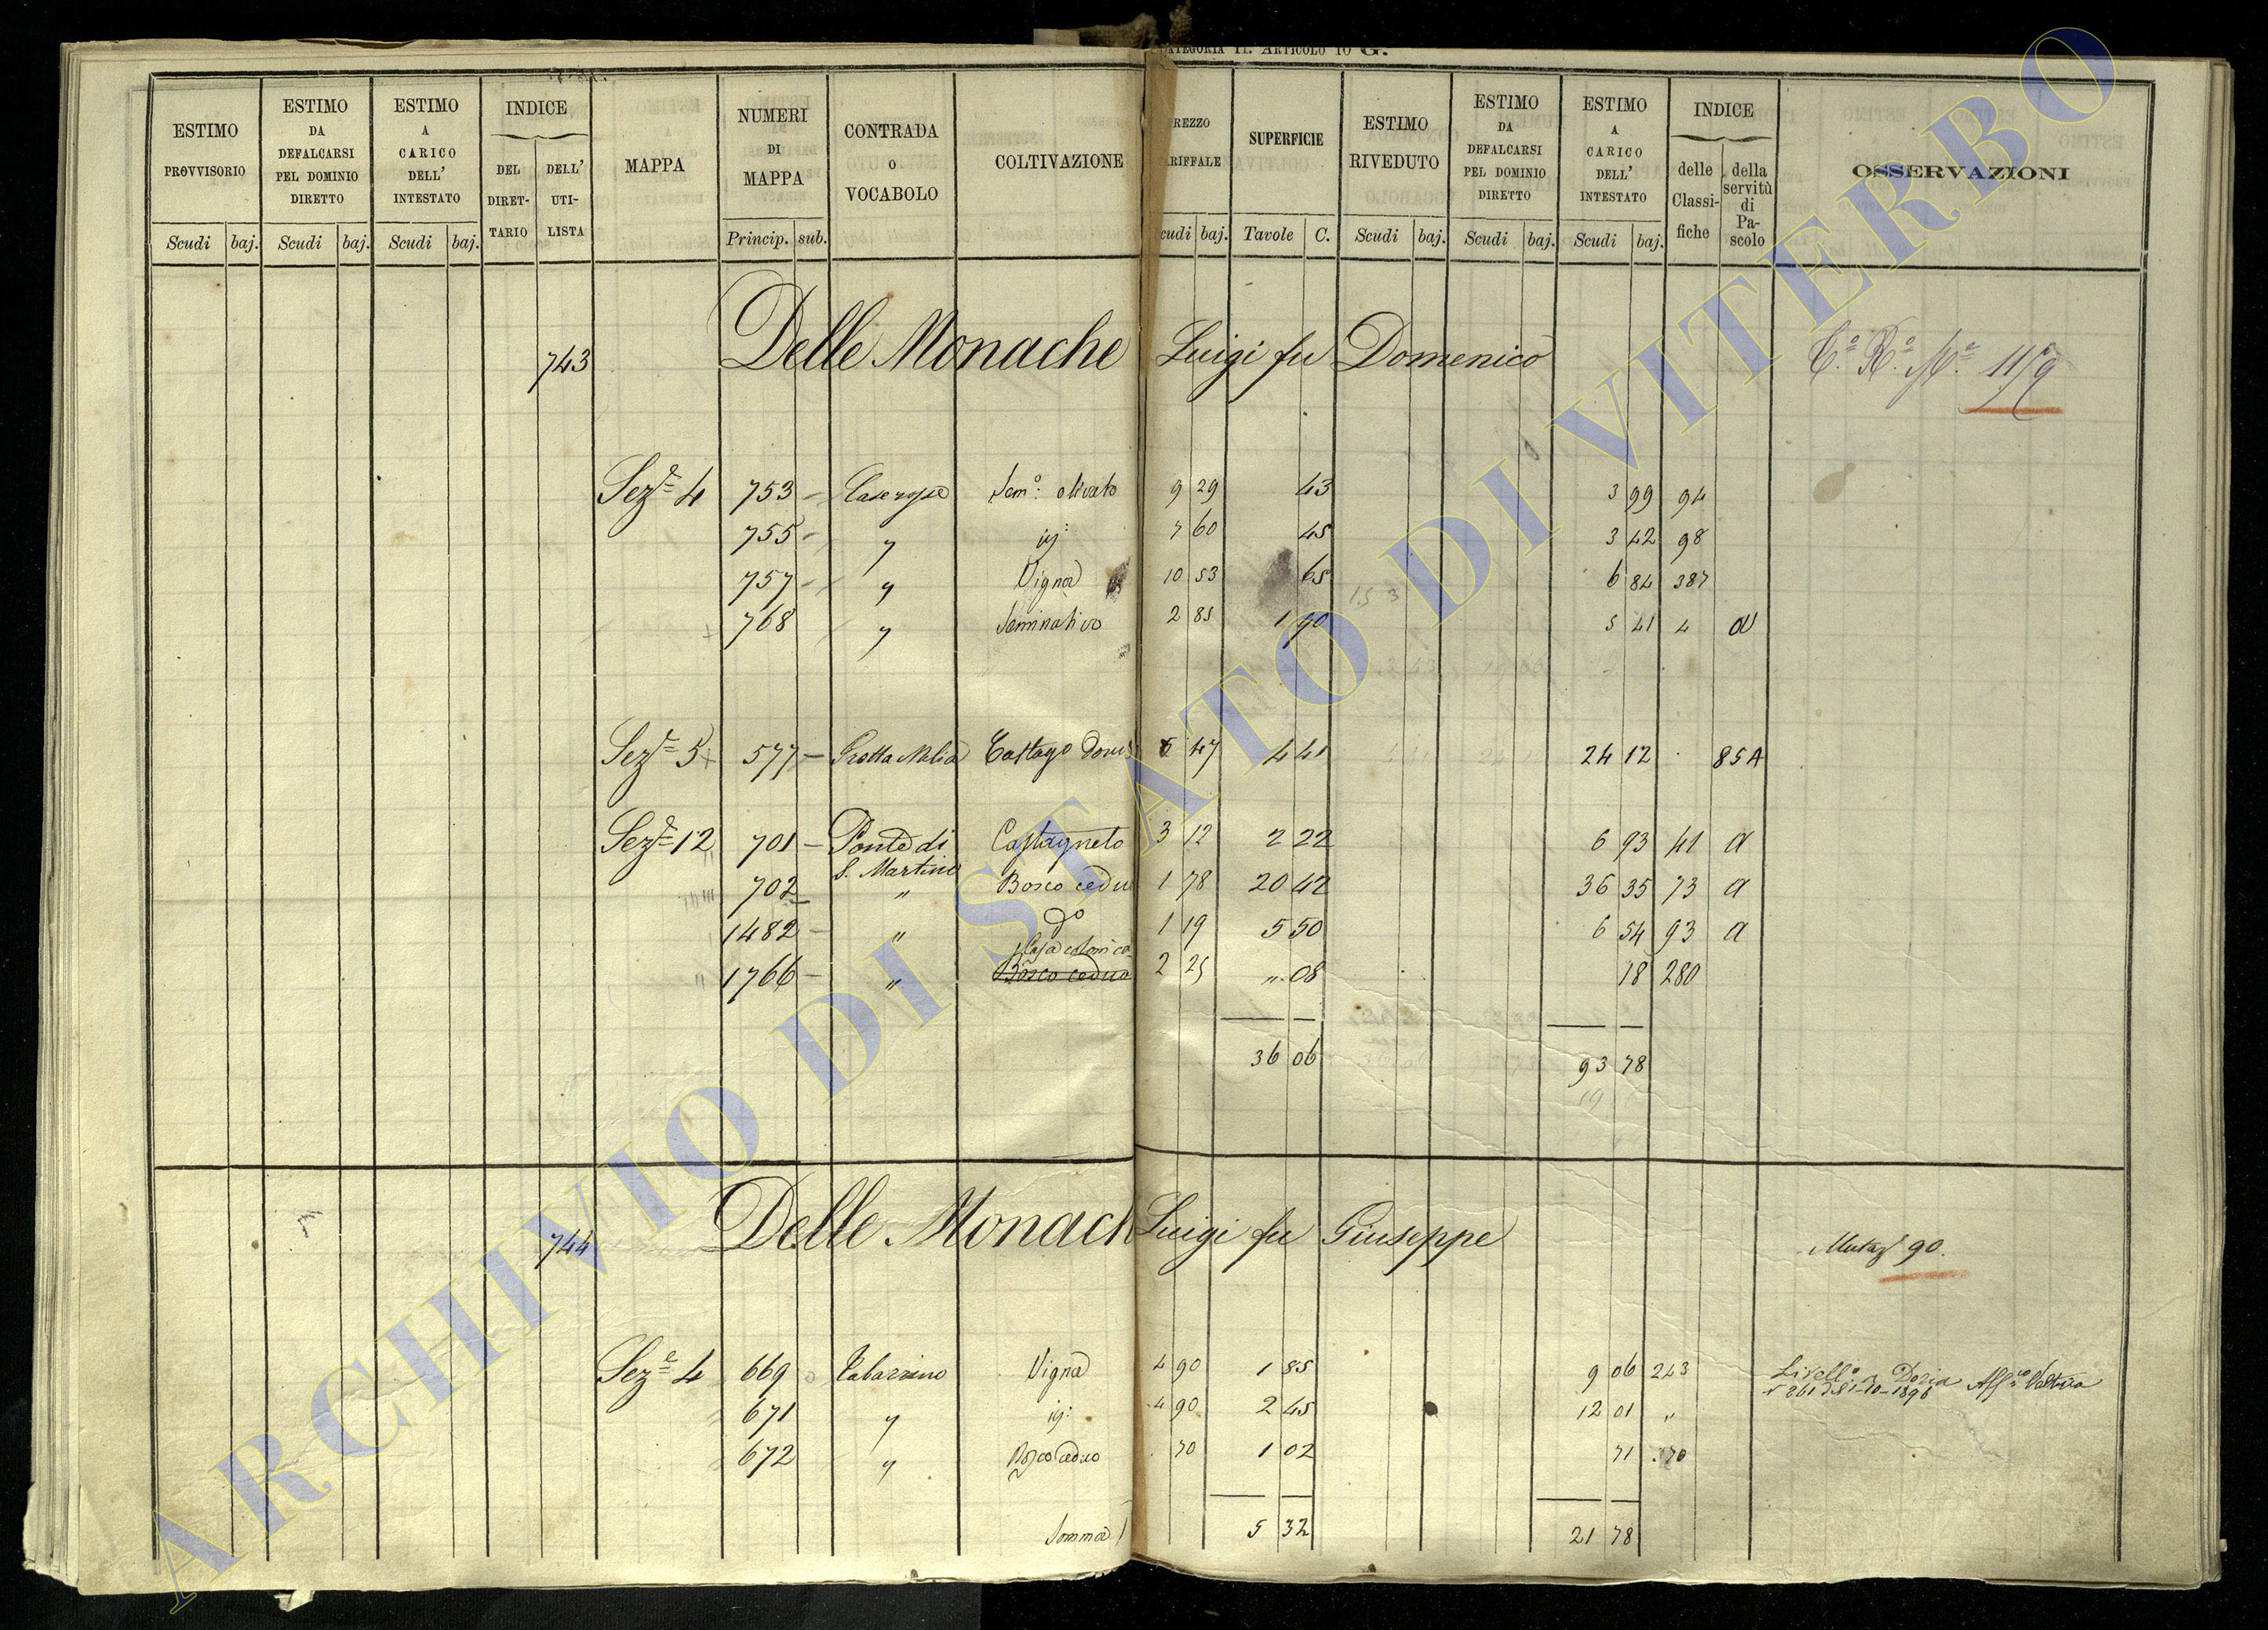 CATEGORIA II. ARTICOLO 10 G.
ESTIMO PROVVISORIO
ESTIMO DA DEFALCARSI PEL DOMINIO DIRETTO
ESTIMO A CARICO DELL' INTESTATO
INDICE
DEL DIRET- TARIO
DELL' UTI- LISTA
MAPPA
NUMERI DI MAPPA
CONTRADA O VOCABOLO
COLTIVAZIONE
REZZO ARIFFALE
SUPERFICIE
ESTIMO RIVEDUTO
ESTIMO DA DEFALCARSI PEL DOMINIO DIRETTO
ESTIMO A CARICO DELL' INTESTATO
INDICE
delle Classi- fiche
della servitù di Pa- scolo
OSSERVAZIONI
Scudi baj. Scudi baj. Scudi baj. Princip. sub. cudi baj. Tavole C. Scudi baj. Scudi baj. Scudi baj.
743 Delle Monache Luigi fu Domenico
Sez.e 4 753 Sem.o olivato 9 29 43 3 99 94
755 " 7 60 45 3 42 98
757 " Vigna 10 53 65 6 84 387
768 " Seminativo 2 85 1 90 5 41 4 a
Sez.e 5 577 5 47 4 41 24 12 85 A
Sez.e 12 701 Ponte di S. Martino Castagneto 3 12 2 22 6 93 41 a
702 " Bosco cedu 1 78 20 42 36 35 73 a
1482 " do 1 19 5 50 6 54 93 a
Casa colonica
1766 " Bosco ceduo 2 25 " 08 18 280
36 06 93 78
744 Delle Monach Luigi fu Giuseppe
Mutaz 90.
Sez.e 4 669 Tabarrino Vigna 4 90 1 85 9 06 243
671 " 4 90 2 45 12 01 "
672 " Bosco ceduo 70 1 02 71 70
Somma 5 32 21 78
ARCHIVIO DI STATO DI VITERBO